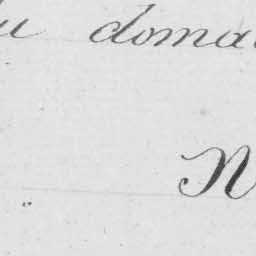 du doma
N